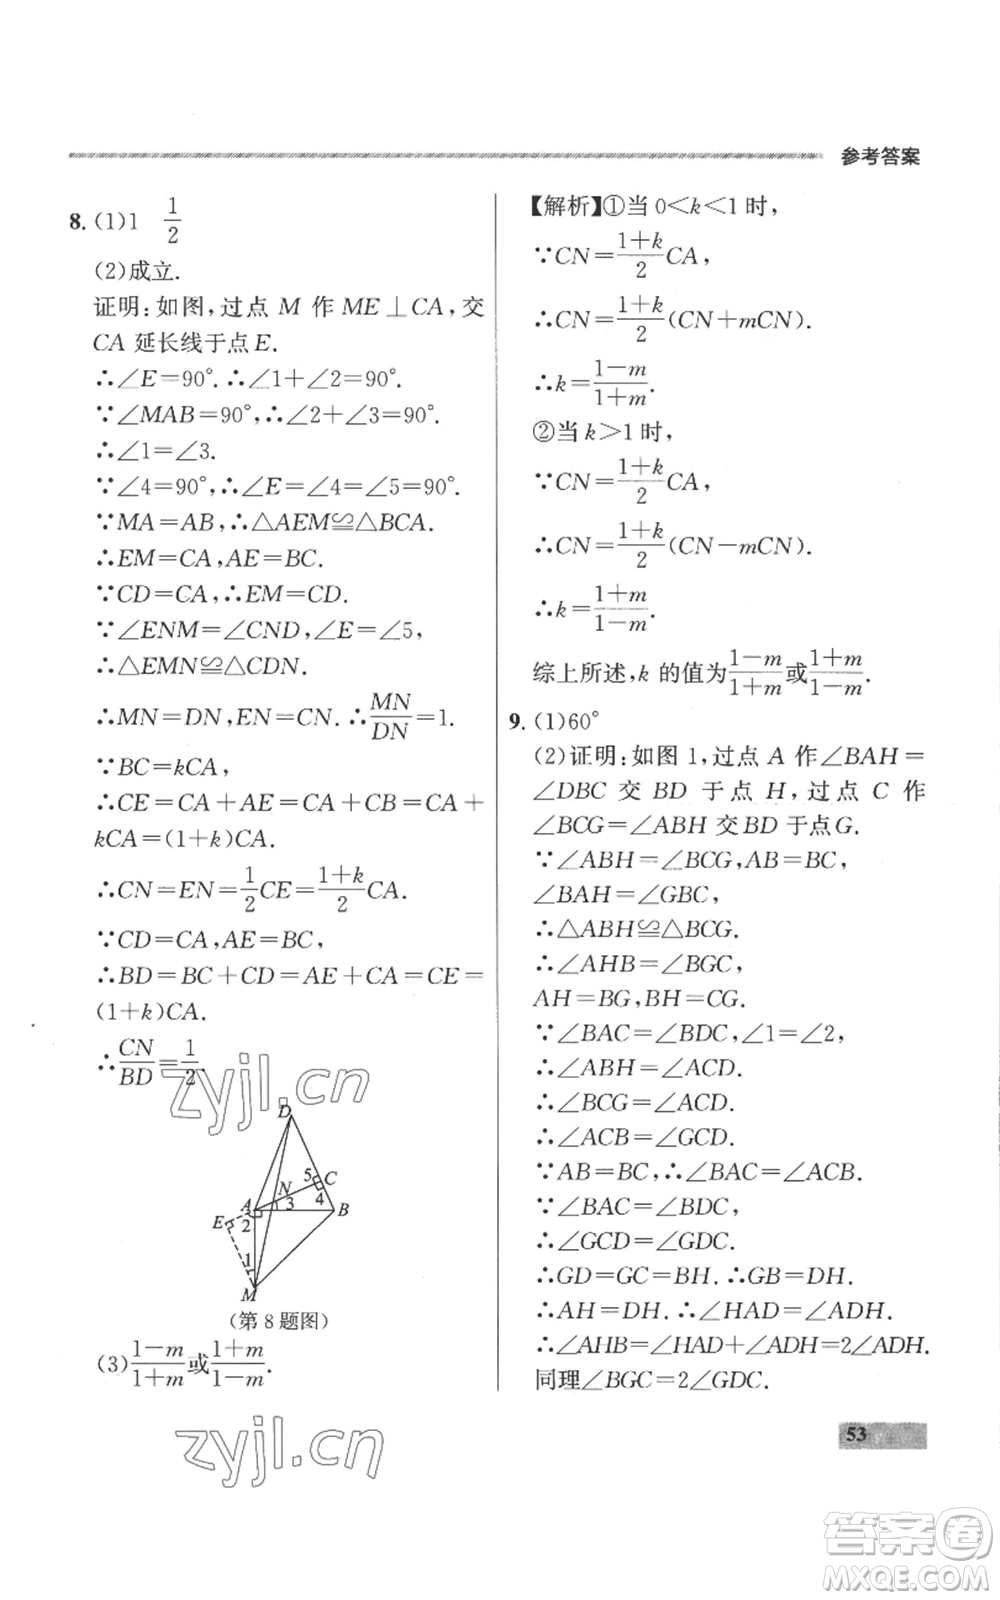 参考答案
8. (1)1 1/2
(2)成立.
证明:如图,过点 M 作 ME⊥CA,交
CA 延长线于点 E.
∴∠E=90°.∴∠1+∠2=90°.
∵∠MAB=90°,∴∠2+∠3=90°.
∴∠1=∠3.
∵∠4=90°,∴∠E=∠4=∠5=90°.
∵MA=AB,∴△AEM≌△BCA.
∴EM=CA,AE=BC.
∵CD=CA,∴EM=CD.
∵∠ENM=∠CND,∠E=∠5,
∴△EMN≌△CDN.
∴MN=DN,EN=CN.∴MN/DN=1.
∵BC=kCA,
∴CE=CA+AE=CA+CB=CA+
kCA=(1+k)CA.
∴CN=EN=1/2CE=(1+k)/2CA.
∵CD=CA,AE=BC,
∴BD=BC+CD=AE+CA=CE=
(1+k)CA.
∴CN/BD=1/2.
zyjl.cn
D
5 C
N 4
A 3 B
E 2
1
M
(第 8 题图)
(3)(1-m)/(1+m)或(1+m)/(1-m).
zyjl.cn
【解析】①当 0<k<1 时,
∵CN=(1+k)/2CA,
∴CN=(1+k)/2(CN+mCN).
∴k=(1-m)/(1+m).
②当 k>1 时,
∵CN=(1+k)/2CA,
∴CN=(1+k)/2(CN-mCN).
∴k=(1+m)/(1-m).
综上所述,k 的值为(1-m)/(1+m)或(1+m)/(1-m).
9. (1)60°
(2)证明:如图 1,过点 A 作∠BAH=
∠DBC 交 BD 于点 H,过点 C 作
∠BCG=∠ABH 交 BD 于点 G.
∵∠ABH=∠BCG,AB=BC,
∠BAH=∠GBC,
∴△ABH≌△BCG.
∴∠AHB=∠BGC,
AH=BG,BH=CG.
∵∠BAC=∠BDC,∠1=∠2,
∴∠ABH=∠ACD.
∴∠BCG=∠ACD.
∴∠ACB=∠GCD.
∵AB=BC,∴∠BAC=∠ACB.
∵∠BAC=∠BDC,
∴∠GCD=∠BDC.
∴GD=GC=BH.∴GB=DH.
∴AH=DH.∴∠HAD=∠ADH.
∴∠AHB=∠HAD+∠ADH=2∠ADH.
同理∠BGC=2∠GDC.
53
答案卷
MXQE.COM